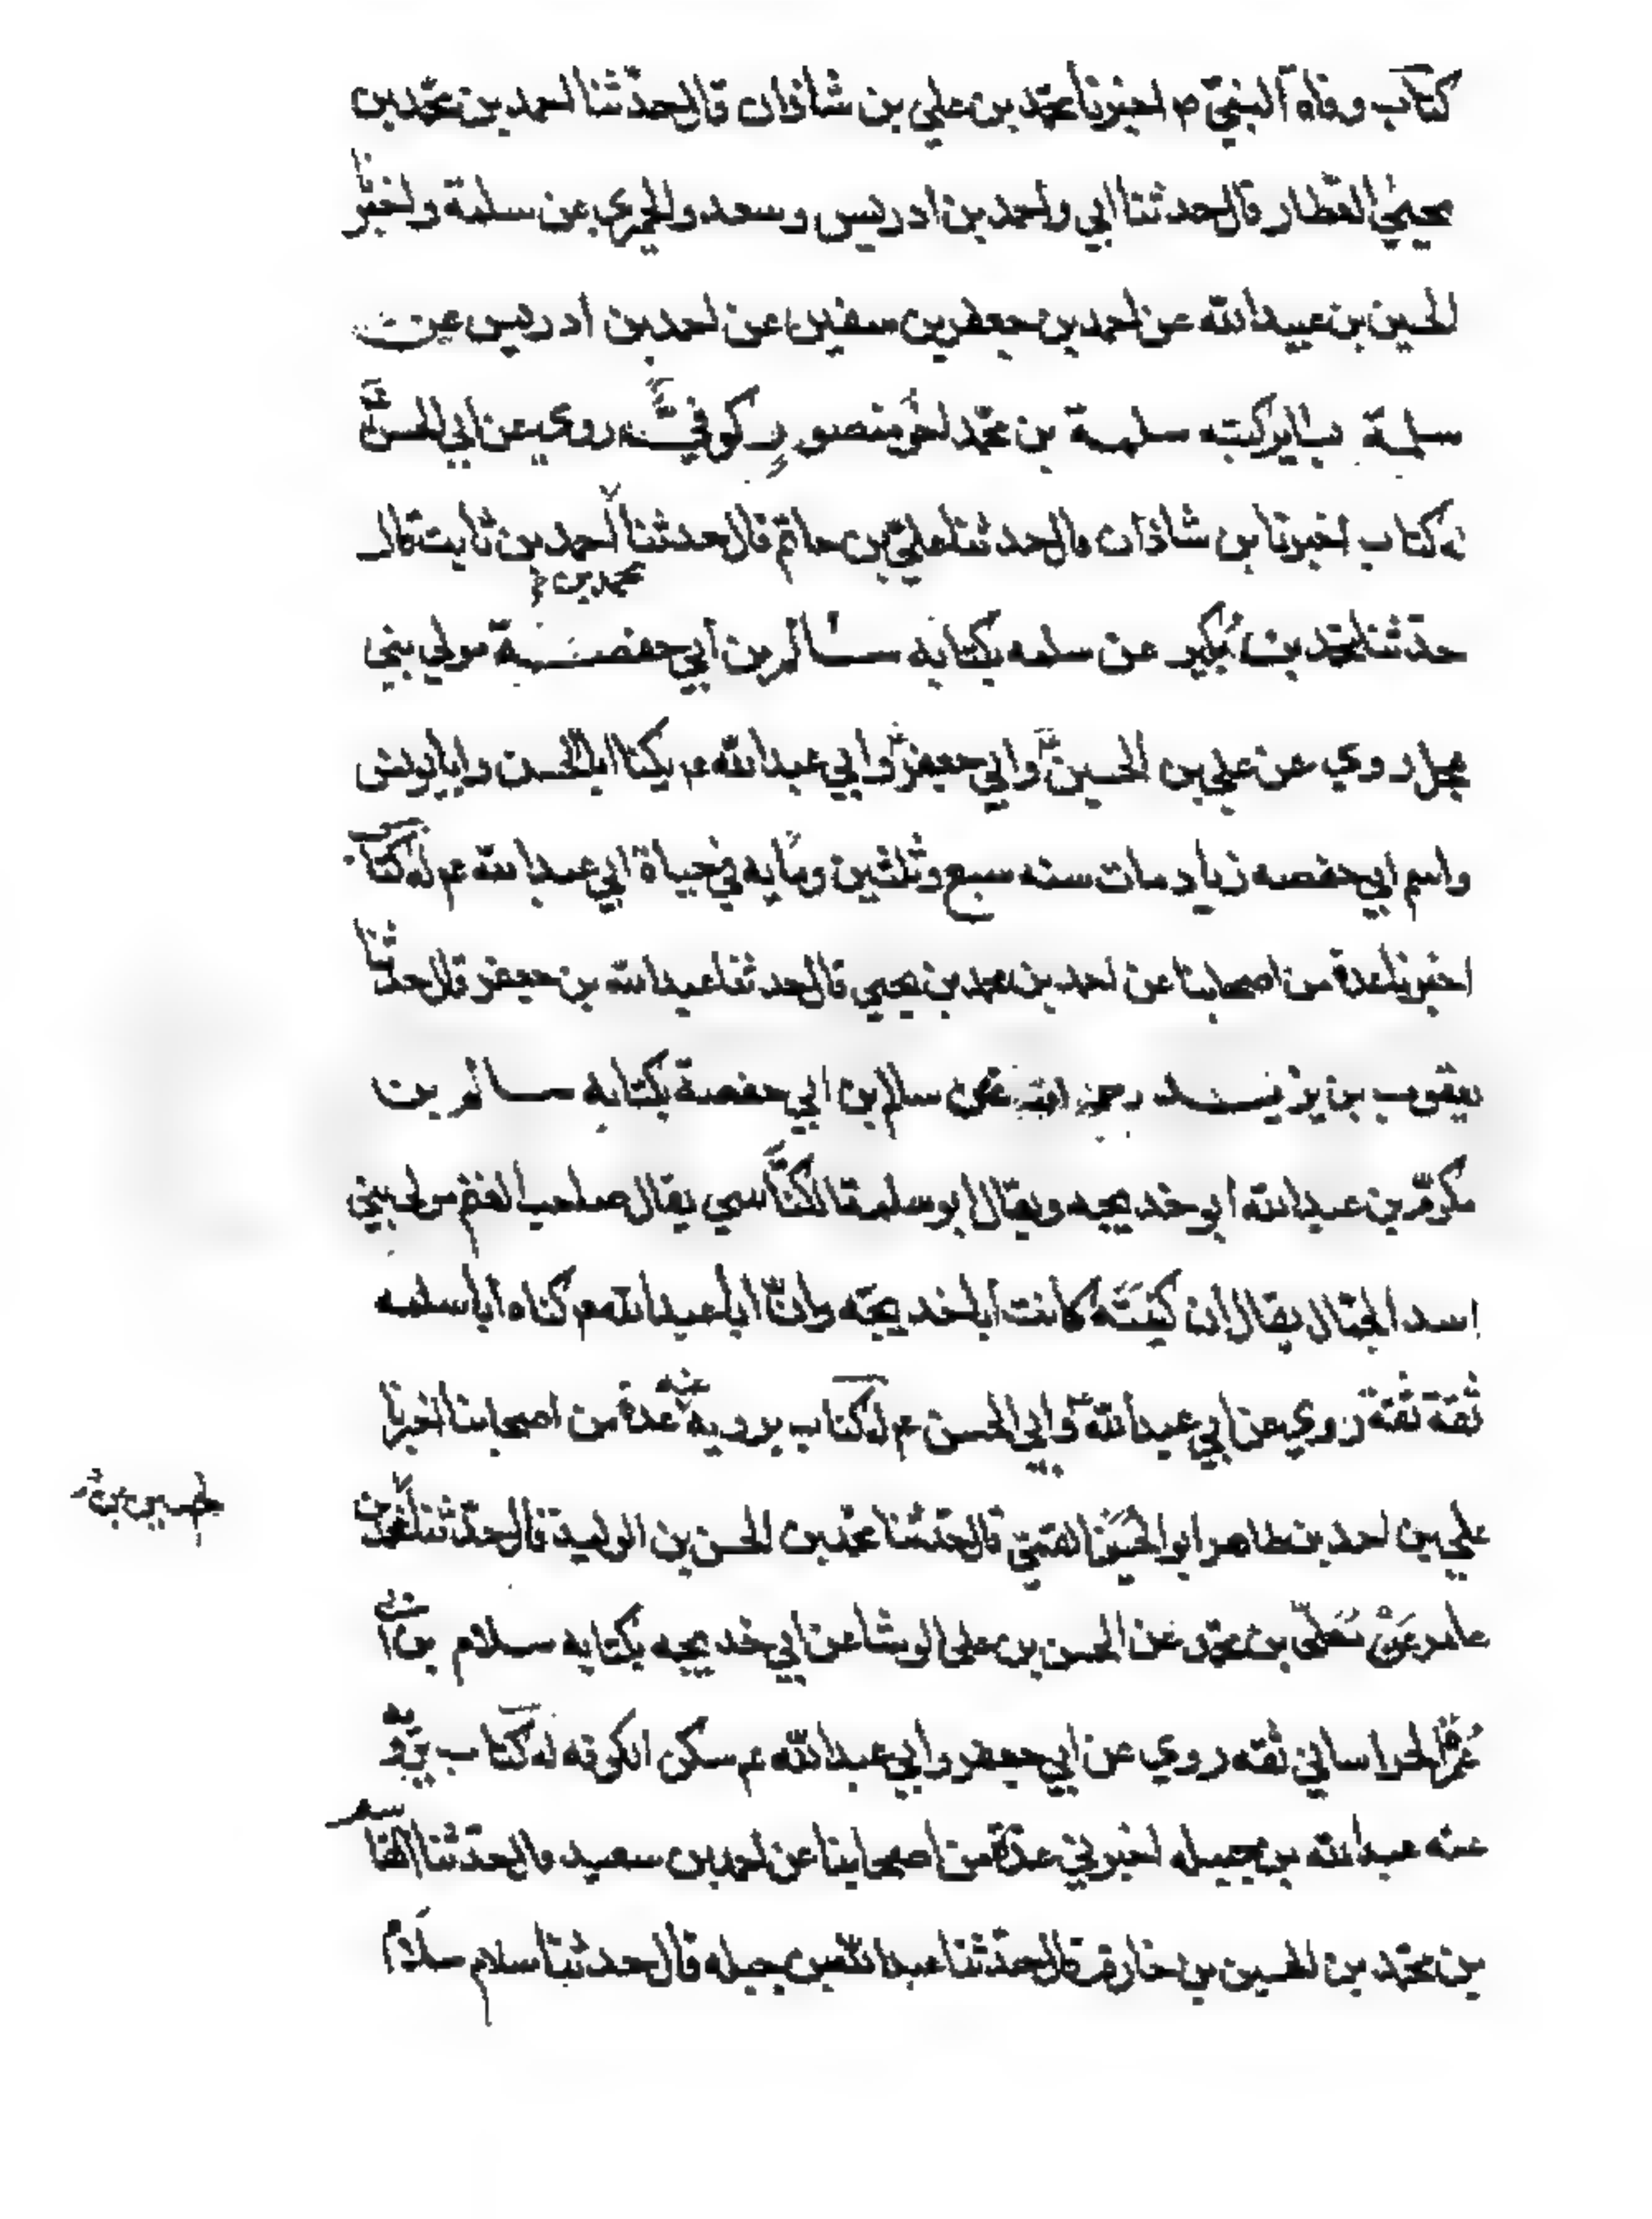 كتاب وفاة النبي ص اخبرنا محمد بن علي بن شاذان قال حدثنا احمد بن محمد بن
يحيى العطار قال حدثنا ابي واحمد بن ادريس وسعد والحميري عن سلمة واخبرنا
الحسين بن عبيد الله عن احمد بن جعفر بن سفين عن احمد بن ادريس عن
سلمة بساير كتبه سلمة بن محمد اخو منصور كوفي ثقه روى عن ابي الحسن ع
له كتاب اخبرنا بن شاذان قال حدثنا علي بن حاتم قال حدثنا احمد بن ثابت قال
محمد بن
حدثنا محمد بن بكير عن سلمه بكتابه سالم بن ابي حفصة مولى بني
عجل روي عن علي بن الحسين وابي جعفر وابي عبد الله ع يكنا ابا الحسن وابا يونس
واسم ابي حفصه زياد مات سنه سبع وثلثين ومايه في حياة ابي عبد الله ع له كتاب
اخبرنا عدة من اصحابنا عن احمد بن محمد بن يحيى قال حدثنا عبد الله بن جعفر قال حدثنا
يعقوب بن يزيد عن سالم بن ابي حفصة بكتابه سالم بن
مكرم بن عبد الله ابو خديجه ويقال ابو سلمه قال الكناسي يقال صاحب الغنم مولى بني
اسد الجمال يقال ان كنيته كانت ابا خديجه وان ابا عبد الله ع كناه ابا سلمه
ثقة ثقة روي عن ابي عبد الله وابي الحسن ع له كتاب يرويه عنه عدة من اصحابنا اخبرنا
علي بن احمد بن طاهر ابو الحسين القمي قال حدثنا محمد بن الحسن بن الوليد قال حدثنا محمد بن
الحسين بن
عامر عن معلى بن محمد عن الحسن بن على الوشا عن ابي خديجه بكتابه سلام بن ابي
عمرة الخراساني ثقه روي عن ابي جعفر وابي عبد الله ع سكن الكوفه له كتاب يرويه
عنه عبد الله بن جبيله اخبرني عدة من اصحابنا عن احمد بن سعيد قال حدثنا القاسم
بن محمد بن الحسين بن خازم قال حدثنا عبد الله بن جبله قال حدثنا سلام سلام